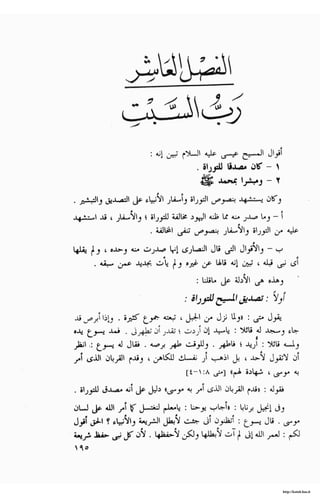 الفصل العاشر
رب السبت
أقوال المسيح عيسى عليه السلام تبين إنه :
١ – كان مصدقا للتوراة .
٢ – ومبشرا بمحمد ﷺ
وكان يستشهد بنصوص التوراة وأسفار الأنبياء على التصديق والتبشير .
أ – وما صدر منه مما ظنه اليهود مخالفة للتوراة ؛ والأسفار ، قد استشهد
عليه من التوراة والأسفار بنصوص تنفى المخالفة .
ب – والأقوال التى قال النصارى إنها صدرت منه وحده ، ولم يقلها
أى نبى قبله ، تبين إنه قالها كما قال غيره ولم يأت بجديد من عنده .
وهذه هى الأدلة على ما قلنا :
أولًا : تصديق المسيح للتوراة :
يقول متى : «ولما نزل من الجبل ، تبعته جموع كثيرة . وإذا أبرص قد
جاء وسجد له قائلًا : يا سيد إن أردت تقدر أن تطهرنى . فمد يسوع يده
ولمسه قائلًا : أريد ، فاطهر . وللوقت طهر برصه . فقال له يسوع : انظر
أن لا تقول لأحد . بل اذهب أر نفسك للكاهن ، وقدم القربان الذى أمر
به موسى ، شهادة لهم» [متى ٨: ١-٤]
فقوله : «وقدم القربان الذى أمر به موسى» دليل على أنه مصدق للتوراة .
وفى إنجيل برنابا : «فأجاب يسوع : يا معلم لنغتسل كما أمر الله على لسان
موسى . قال يسوع : أتظنون أنى جئت لأبطل الشريعة والأنبياء ؟ الحق أقول
لكم : لعمر الله إنى لم آت لأبطلها ولكن لأحفظها . لأن كل نبى حفظ شريعة
١٩٥
http://kotob.has.it